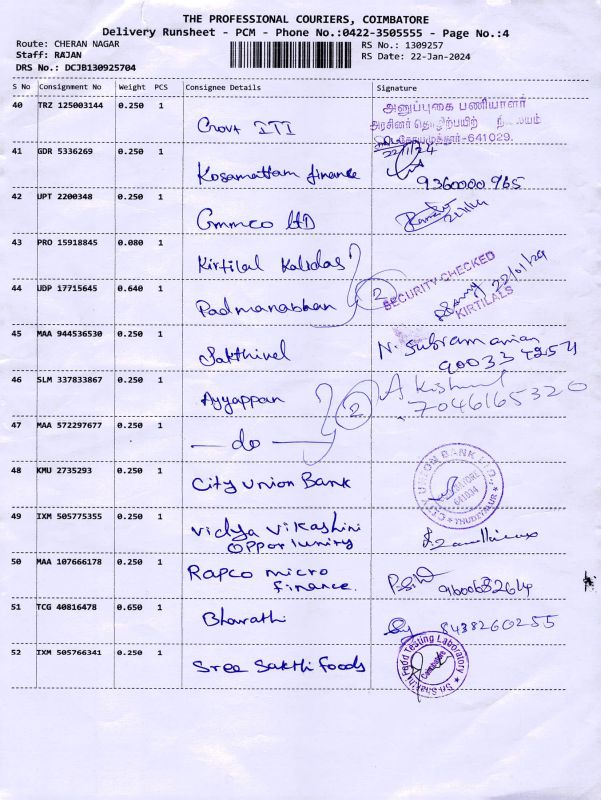 THE PROFESSIONAL COURIERS, COIMBATORE
Delivery Runsheet - PCM - Phone No.:0422-3505555 - Page No.:4
Route: CHERAN NAGAR RS No.: 1309257
Staff: RAJAN RS Date: 22-Jan-2024
DRS No.: DCJB130925704
S No Consignment No Weight PCS Consignee Details Signature
40 TRZ 125003144 0.250 1 Govt ITI
அனுப்புகை பணியாளர்
அரசினர் தொழிற்பயிற்சி நிலையம்
கோயமுத்தூர்-641029.
41 GDR 5336269 0.250 1 Kosamattam finance 22/1/24
9360000965
42 UPT 2200348 0.250 1 Gmmco LtD
43 PRO 15918845 0.080 1 Kirtilal Kalidas
44 UDP 17715645 0.640 1 Padmanabhan 2
SECURITY CHECKED
22/01/24
KIRTILALS
45 MAA 944536530 0.250 1 Sakthivel N. Subramanian
90033 42574
46 SLM 337833867 0.250 1 Ayyappan 2
7046165320
47 MAA 572297677 0.250 1 —do—
48 KMU 2735293 0.250 1 City Union Bank
CITY UNION BANK LTD.
641034
THUDIYALUR
49 IXM 505775355 0.250 1 Vidya Vikashini
Opportunity
50 MAA 107666178 0.250 1 Rapco micro
finance. 9600682614
51 TCG 40816478 0.650 1 Bharathi 8438260255
52 IXM 505766341 0.250 1 Sree Sakthi Foods
Sri Shakthi Food Testing Laboratory
Coimbatore